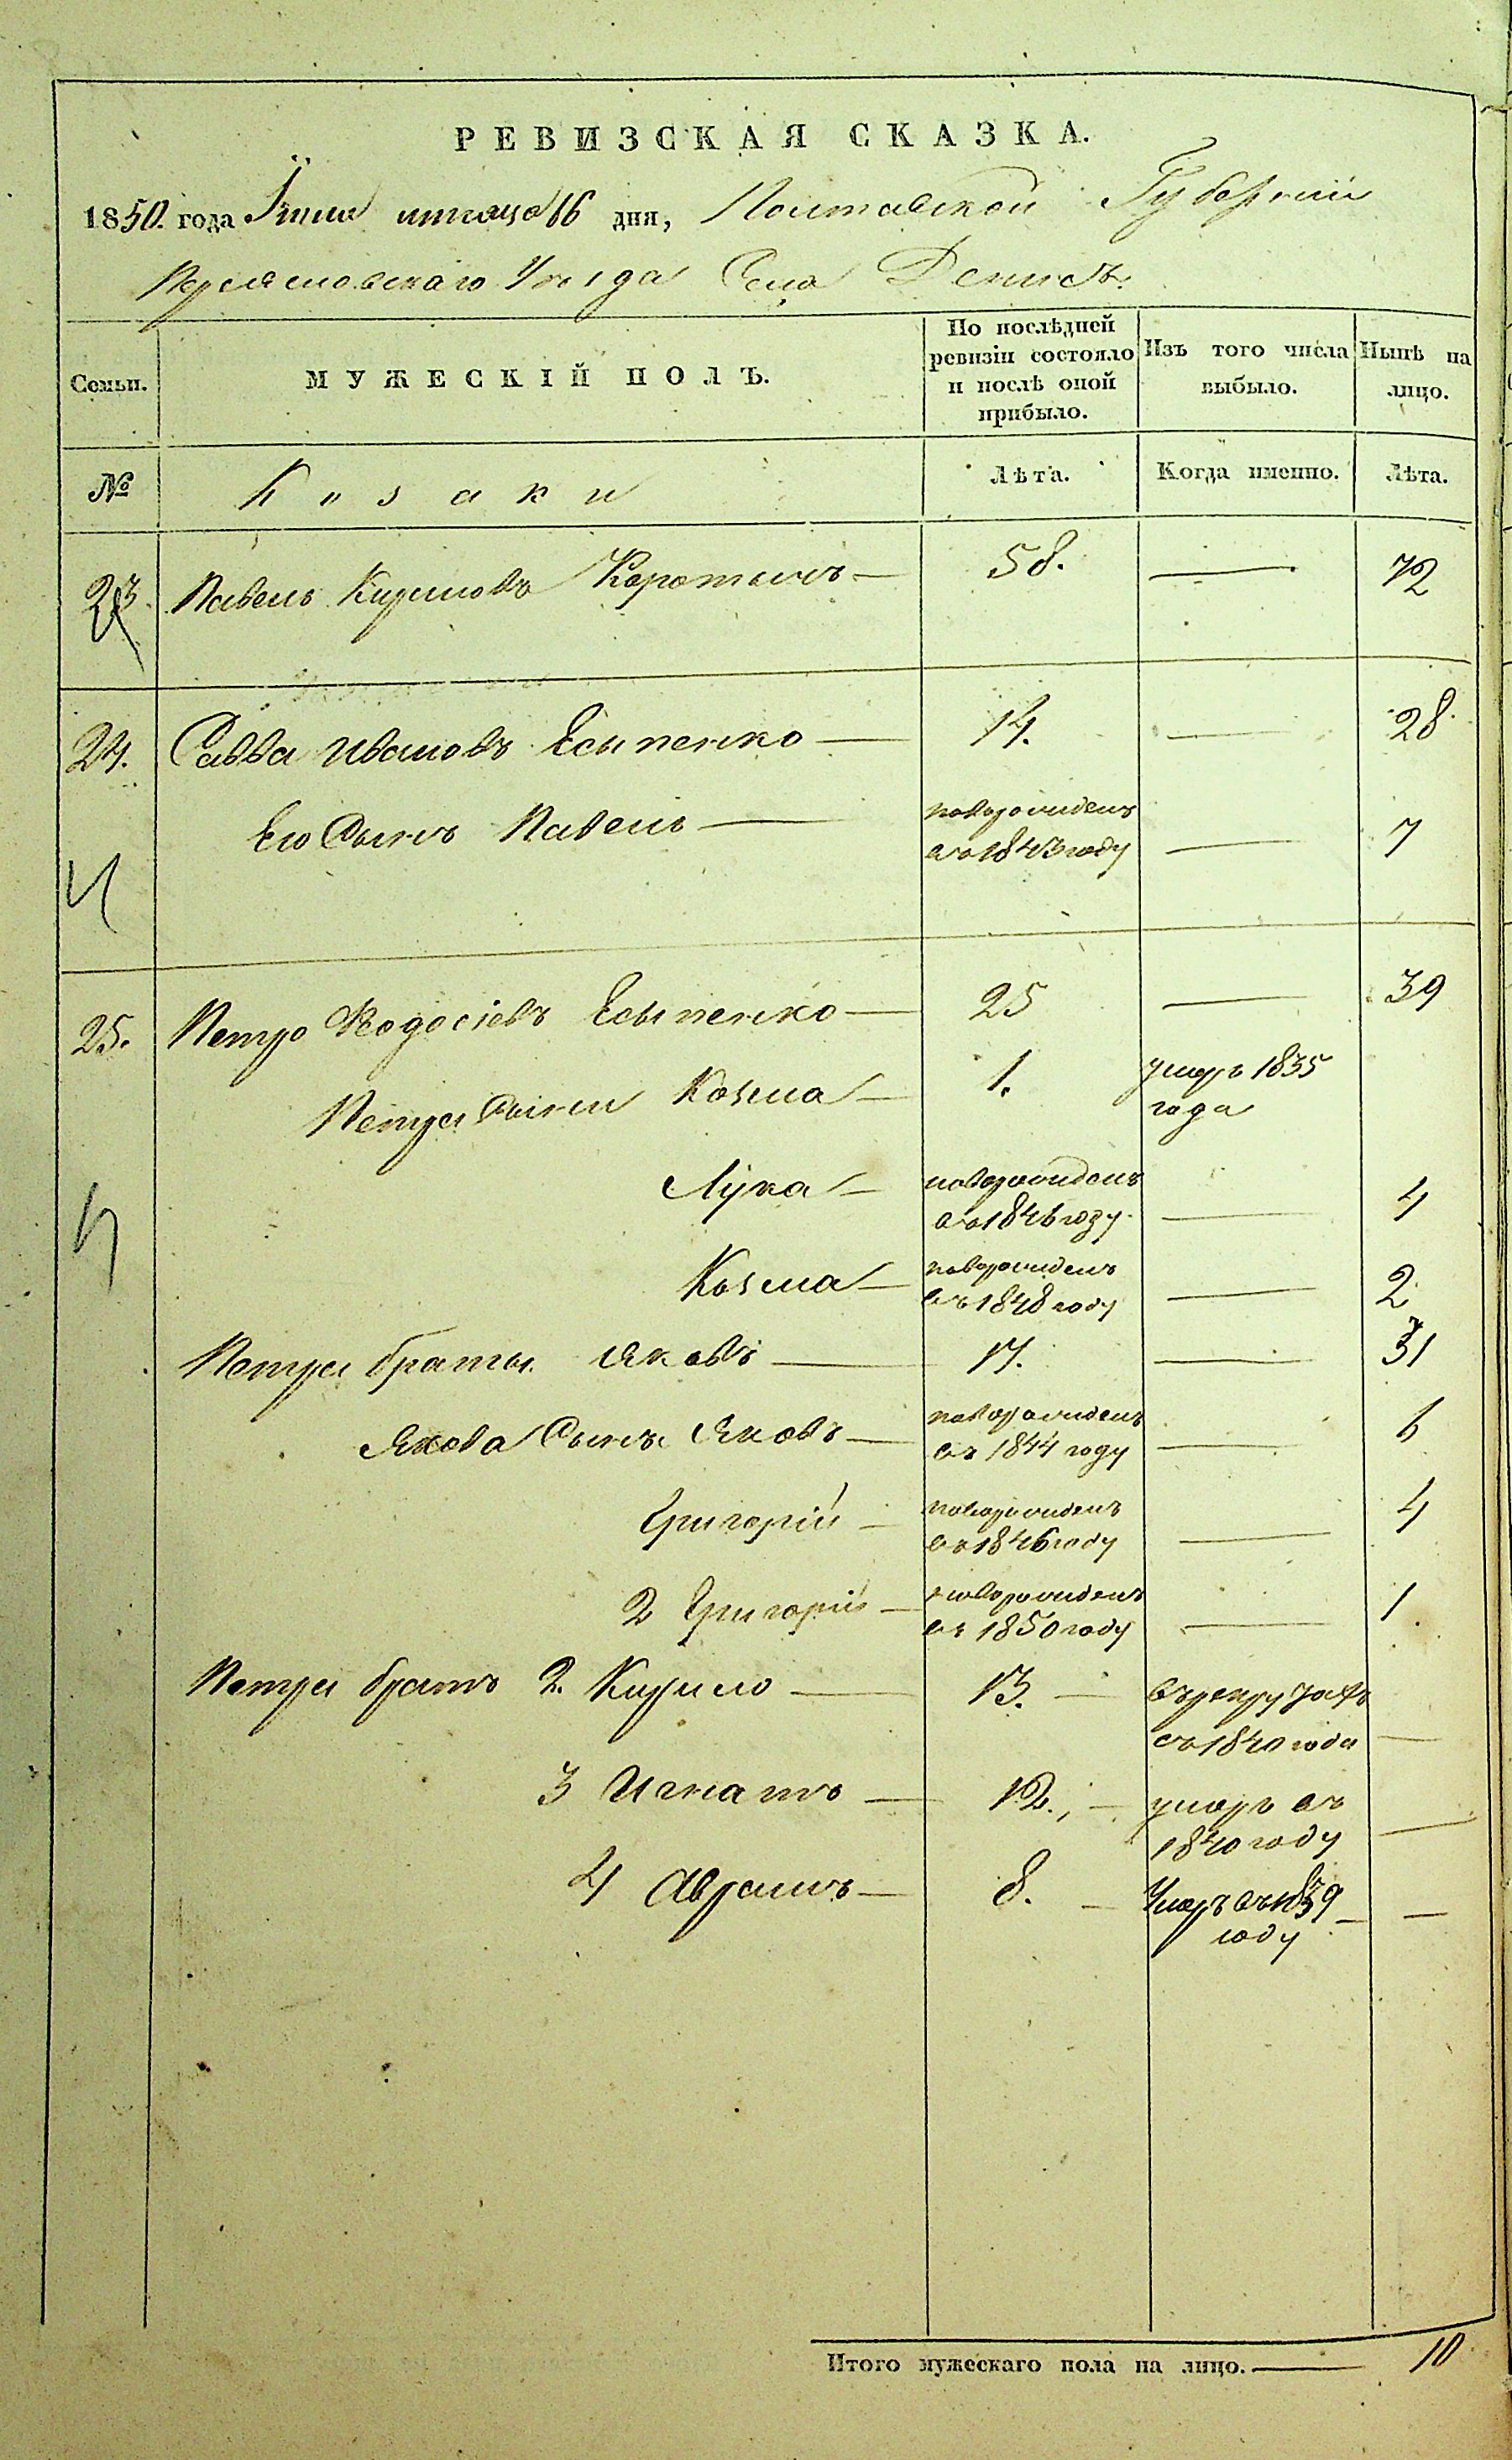 РЕВИЗСКАЯ СКАЗКА.
1850. года Iюня мѣсяца 16 дня, Полтавской Губернiи
Переяславскаго Уѣзда Села Денисъ.
Семьи.
МУЖЕСКІЙ ПОЛЪ.
По послѣдней ревизіи состояло и послѣ оной прибыло.
Изъ того числа выбыло.
Нынѣ на лицо.
№
Козаки
Лѣта.
Когда именно.
Лѣта.
23. Павелъ Кириловъ — 58. — 72
24. Савва Ивановъ Есипенко — 14. — 28
Его Сынъ Павелъ — новорожденъ въ 1843 году — 7
25. Петро Ѳедосіевъ Есипенко — 25 — 39
Петра Сыни Козма — 1. умеръ 1835 года
Лука — новорожденъ въ 1846 году — 4
Козма — новорожденъ въ 1848 году — 2
Петра братья Яковъ — 17. — 31
Якова Сынъ Яковъ — новорожденъ въ 1844 году — 6
Григорій — новорожденъ въ 1846 году — 4
2 Григорій — новорожденъ въ 1850 году — 1
Петра братъ 2. Кирило — 13. — въ рекрутахъ съ 1840 года —
3 Игнатъ — 12. — умеръ въ 1840 году —
4 Аврамъ — 8. — Умеръ въ 1839 году — —
Итого мужескаго пола на лицо. — 10